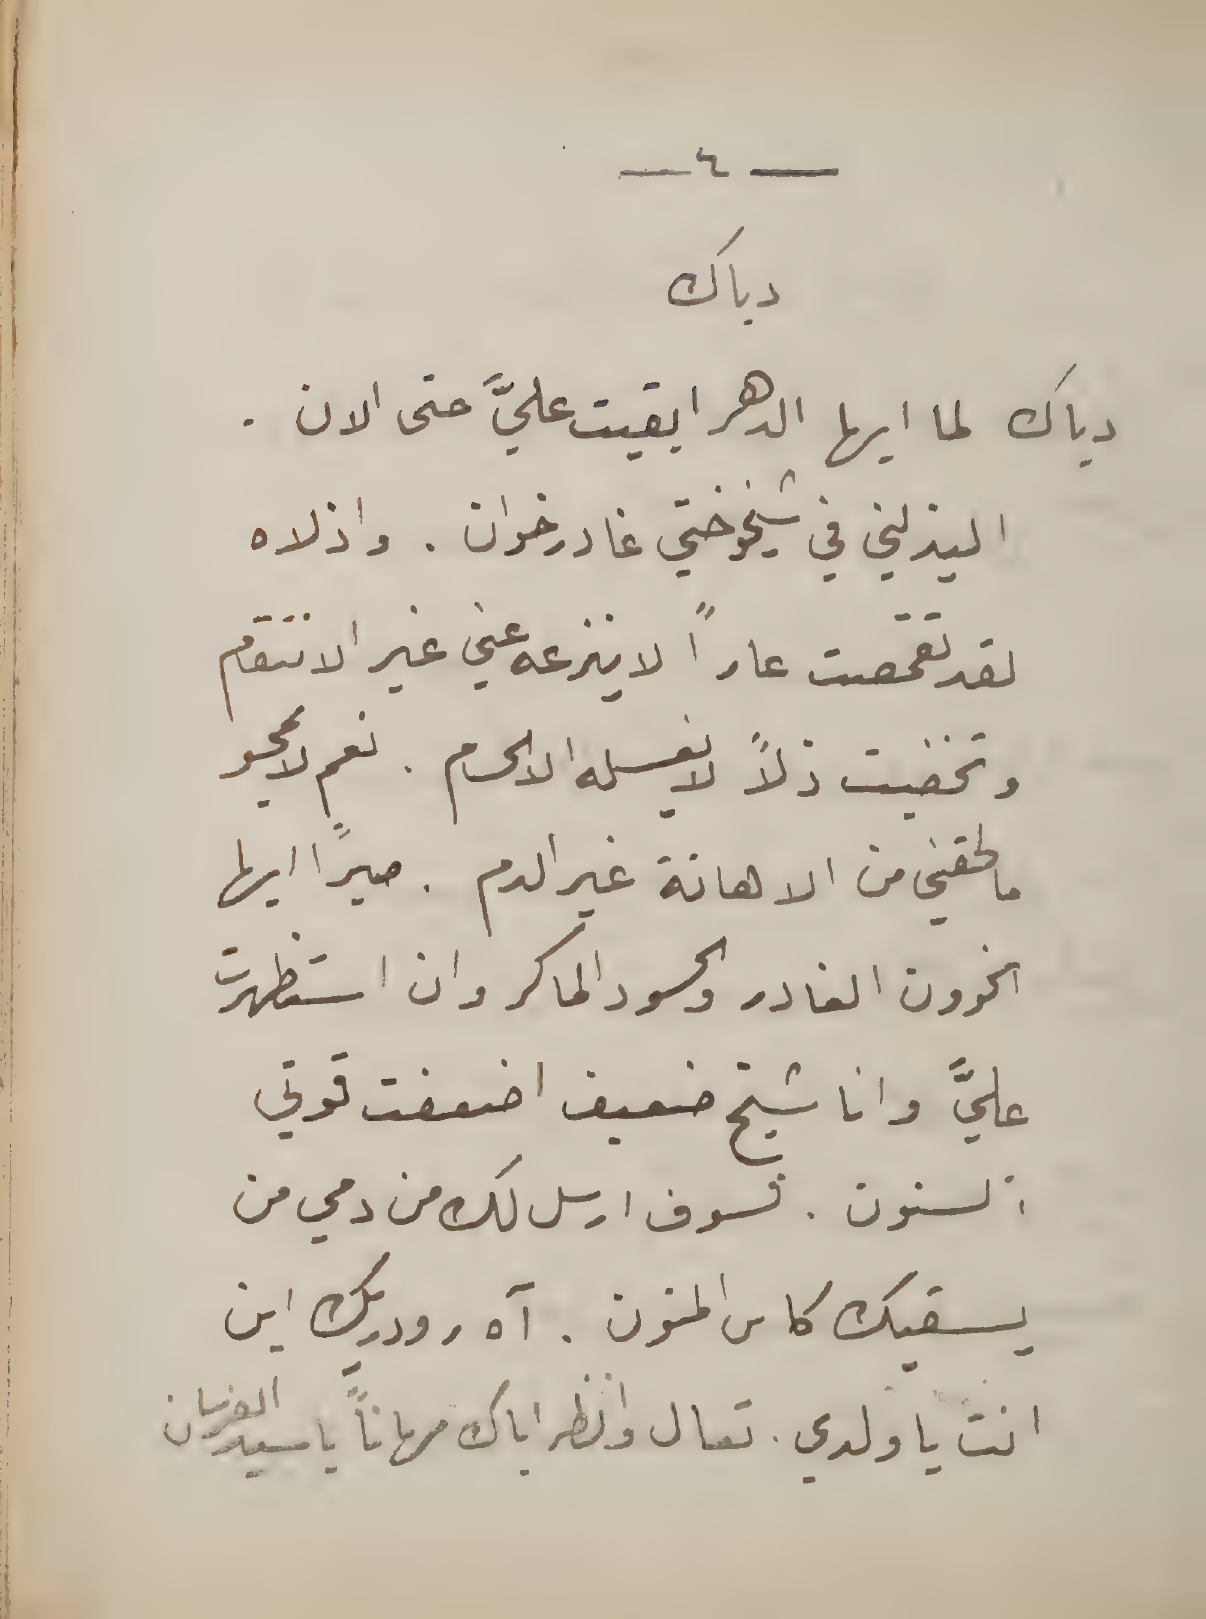 — ٤ —
دياك
دياك لما ايها الدهر ابقيت عليَّ حتى الان .
اليذلني في شيخوختي غادر خوان . واذلاه
لقد تقمصت عاراً لا ينزعه عني غير الانتقام
وتخضبت ذلاً لا يغسله الا الحسام . نعم لا يمحو
ما لحقني من الاهانة غير الدم . صبراً ايها
الخوون الغادر والحسود الماكر وان استظهرت
عليَّ وانا شيخ ضعيف اضعفت قوتي
السنون . فسوف ارسل لك من دمي من
يسقيك كاس المنون . آه رودريك اين
انت يا ولدي . تعال وانظر اباك مهاناً يا سيد الفرسان